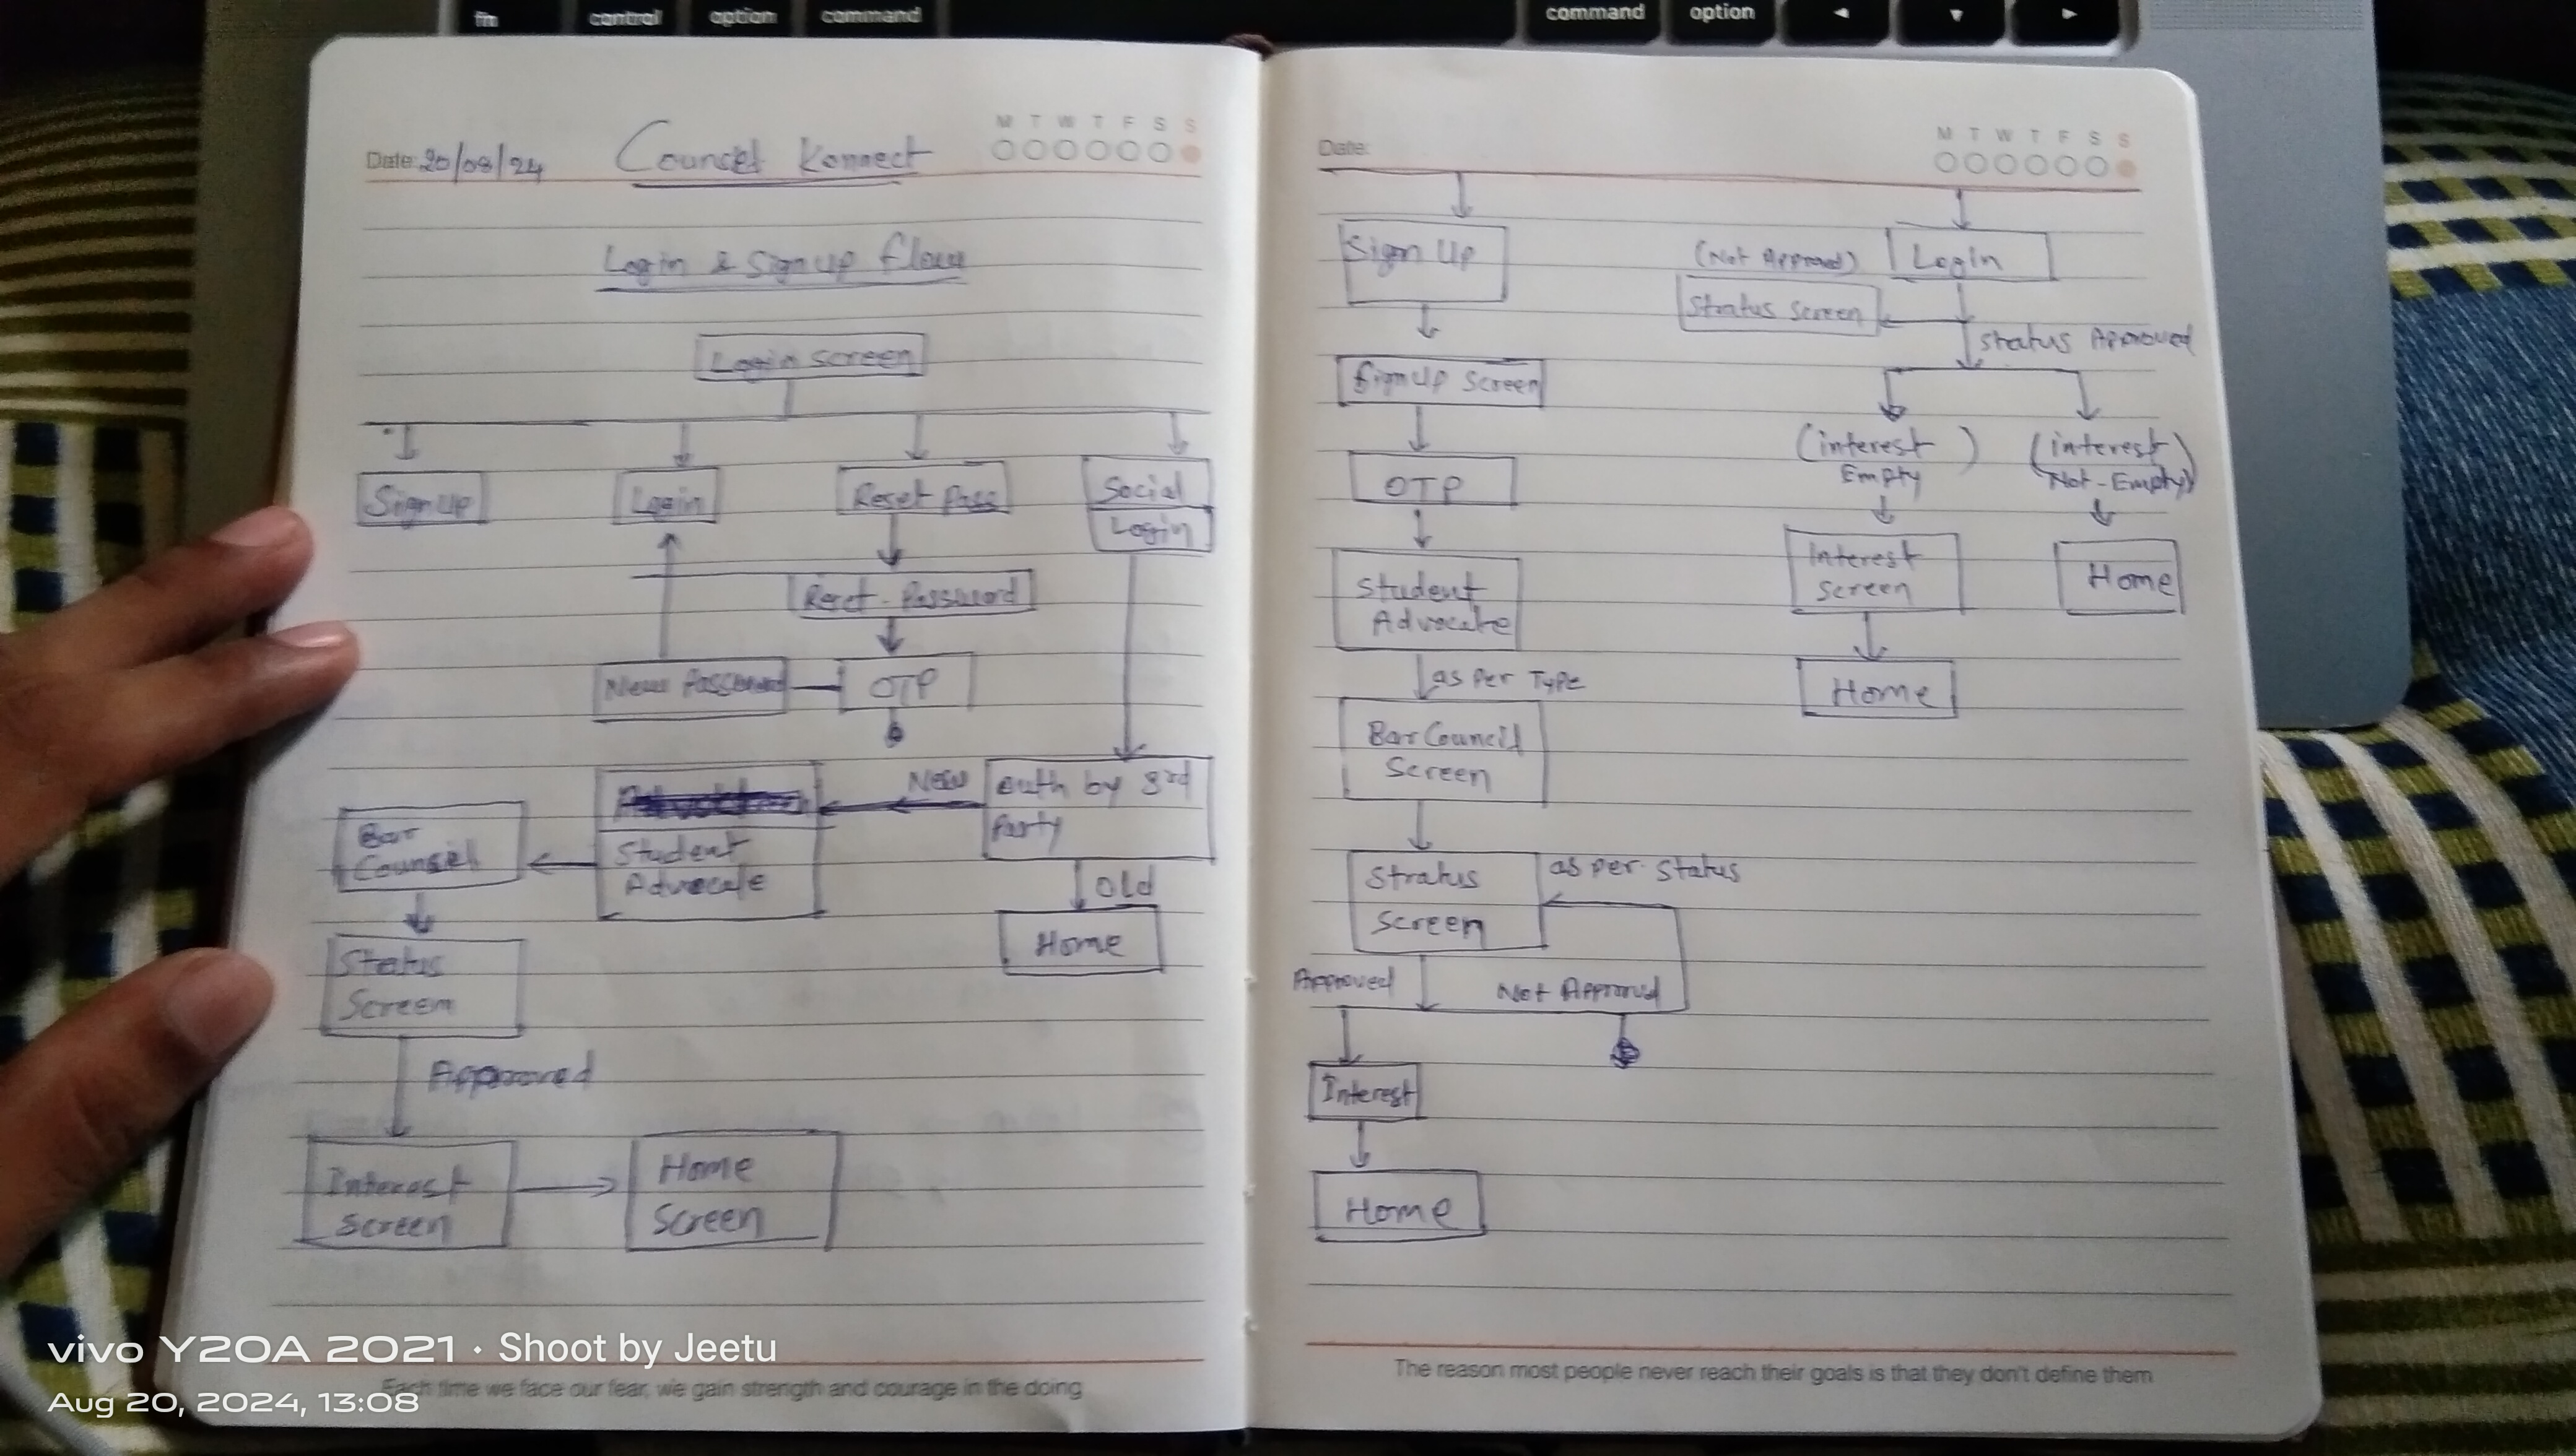 fn control option command command option ◄ ▼ ►
Date: 20/08/24
Counsel Konnect
M T W T F S S
Login & Signup flow
Login screen
Signup
Login
Reset Pass
Social
Login
Reset-Password
New Password
OTP
New
Outh by 3rd
Party
Student
Advocate
Bar
Counsel
Old
Home
Status
Screen
Approved
Interest
Screen
Home
Screen
Each time we face our fear, we gain strength and courage in the doing
Date:
M T W T F S S
Sign Up
SignUp Screen
OTP
Student
Advocate
as per Type
Bar Council
Screen
Stratus
Screen
as per status
Approved
Not Approved
Interest
Home
Login
(Not Approved)
Stratus Screen
Status Approved
(interest )
Empty
(interest
Not-Empty)
Interest
Screen
Home
Home
The reason most people never reach their goals is that they don't define them
vivo Y20A 2021 · Shoot by Jeetu
Aug 20, 2024, 13:08